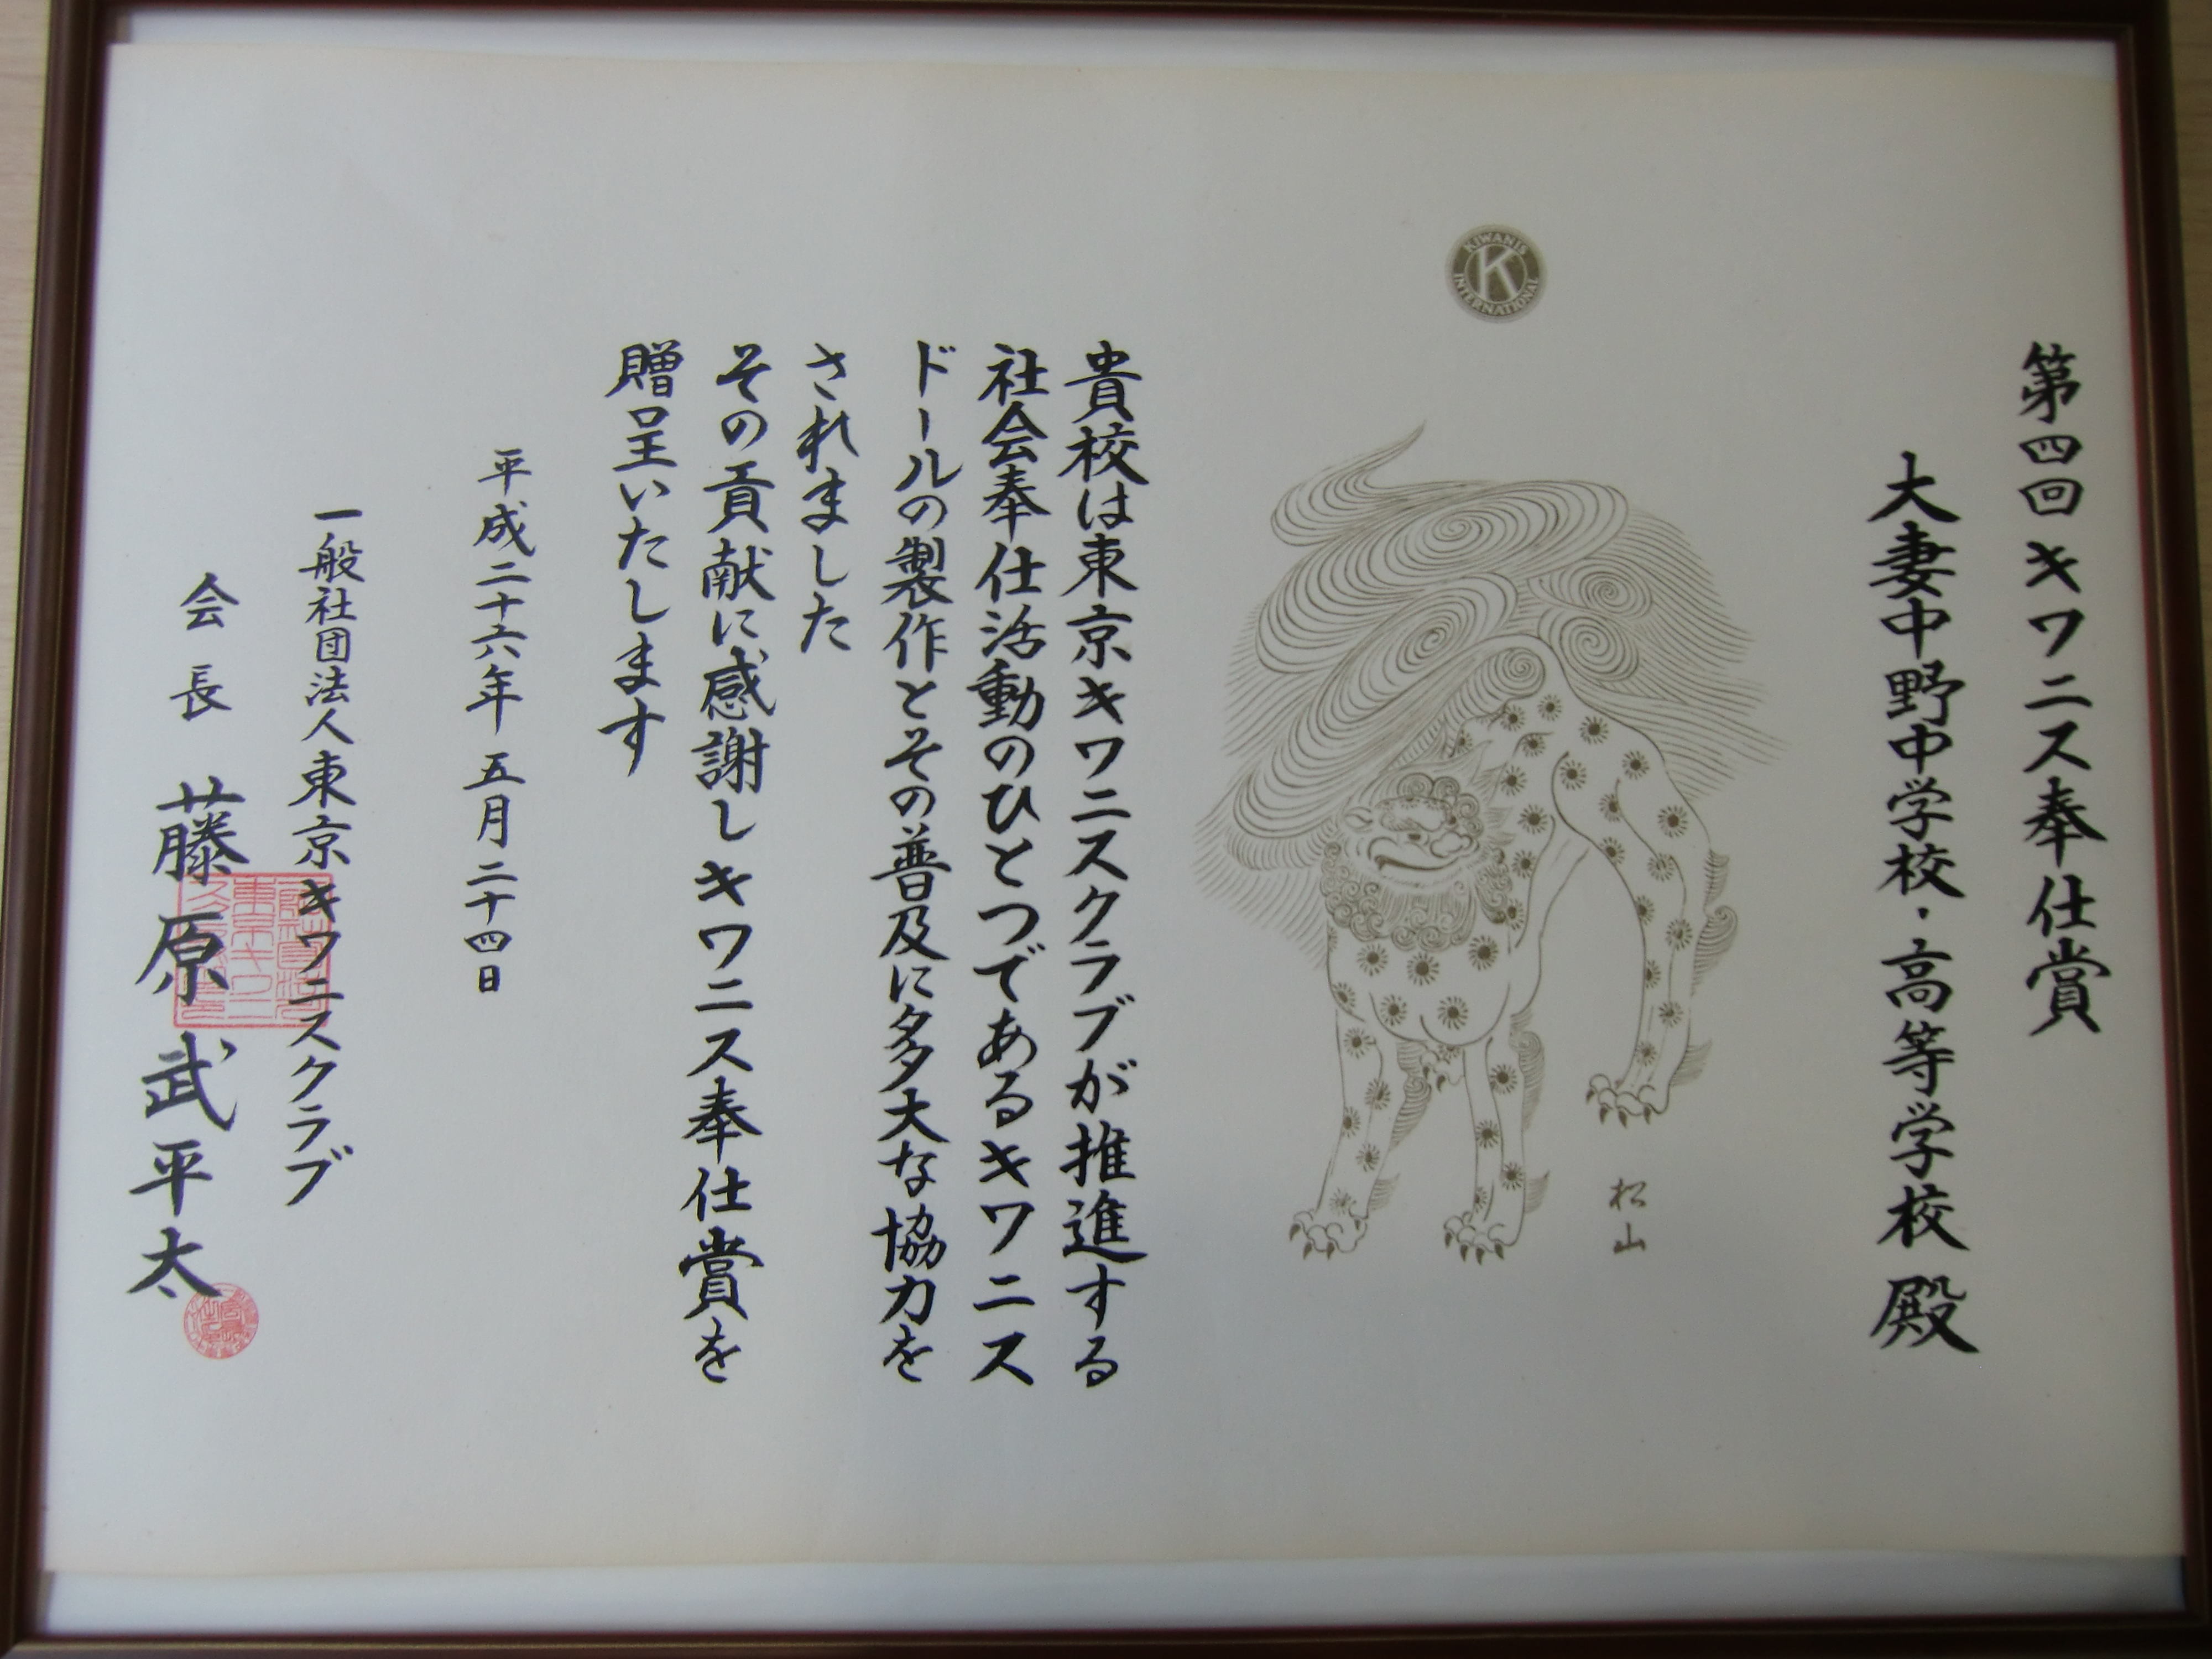 第四回キワニス奉仕賞
大妻中野中学校・高等学校 殿
KIWANIS INTERNATIONAL
K
松山
貴校は東京キワニスクラブが推進する
社会奉仕活動のひとつであるキワニス
ドールの製作とその普及に多大な協力を
されました
その貢献に感謝しキワニス奉仕賞を
贈呈いたします
平成二十六年 五月二十四日
一般社団法人東京キワニスクラブ
会長 藤原武平太